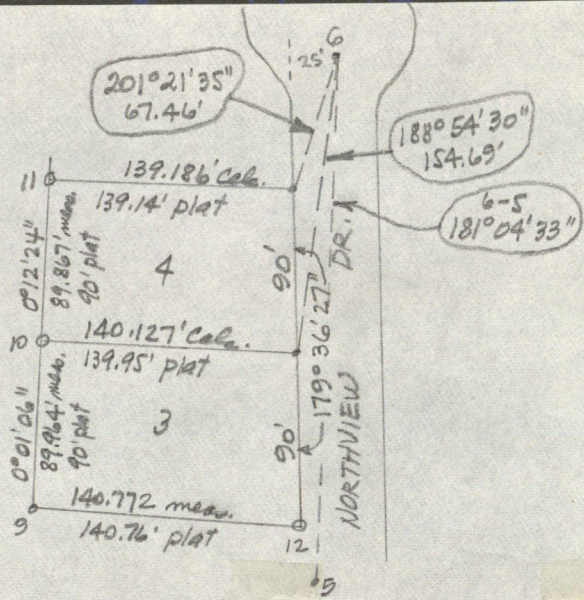 6
25'
201°21'35"
67.46'
188°54'30"
154.69'
6-5
181°04'33"
11
139.186' calc.
139.14' plat
0°12'24"
89.867' meas.
90' plat
4
90'
DR.
10
140.127' calc.
139.95' plat
179°36'27"
0°01'06"
89.964' meas.
90' plat
3
90'
NORTHVIEW
9
140.772 meas.
140.76' plat
12
5